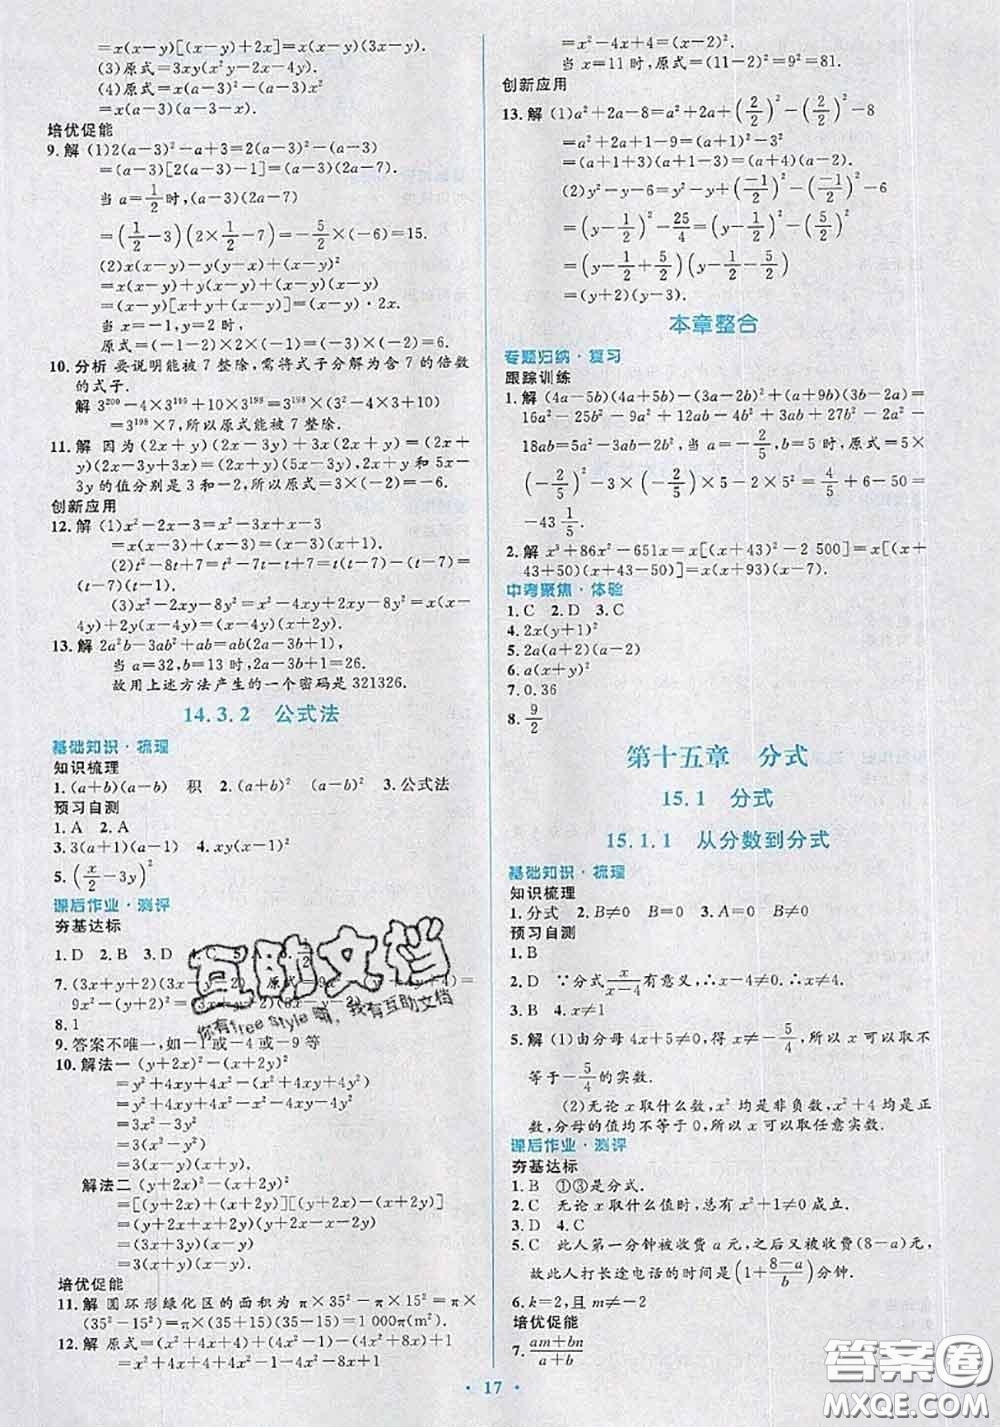 =x(x-y)[(x-y)+2x]=x(x-y)(3x-y).
(3)原式=3xy(x²-2x-4y).
(4)原式=x(a-3)²-(a-3)x²
=x(a-3)(a-3-x).
培优促能
9.解 (1)2(a-3)²-a+3=2(a-3)²-(a-3)
=(a-3)[2(a-3)-1]=(a-3)(2a-7).
当 a=1/2 时,(a-3)(2a-7)
=(1/2-3)(2×1/2-7)=-5/2×(-6)=15.
(2)x(x-y)-y(y-x)
=x(x-y)+y(x-y)
=(x-y)[x+y]
当 x=-1,y=2 时,
10.分析 要说明能被 7 整除,需将式子分解为含 7 的倍数
的式子.
解 3²⁰⁰-4×3¹⁹⁹+10×3¹⁹⁸=3¹⁹⁸×(3²-4×3+10)=
3¹⁹⁸×7,所以原式能被 7 整除.
11.解 因为(2x+y)(2x-3y)+3x(2x+y)=(2x+
y)(2x-3y+3x)=(2x+y)(5x-3y),2x+y 和 5x-
3y 的值分别是 3 和-2,所以原式=3×(-2)=-6.
创新应用
12.解 (1)x²-2x-3=x²-3x+x-3
=x(x-3)+(x-3)=(x-3)(x+1).
(2)t²-8t+7=t²-7t-t+7=t(t-7)-(t-7)=(t-
7)(t-1).
(3)x²-2xy-8y²=x²-4xy+2xy-8y²=x(x-
4y)+2y(x-4y)=(x-4y)(x+2y).
13.解 2a²b-3ab²+ab=ab(2a-3b+1),
当 a=32,b=13 时,2a-3b+1=26.
故用上述方法产生的一个密码是321326.
14.3.2 公式法
基础知识·梳理
知识梳理
1.(a+b)(a-b) 积 2.(a+b)² (a-b)² 3.公式法
预习自测
1.A 2.A
3.3(a+1)(a-1) 4.xy(x-1)²
5.(x/2-3y)²
课后作业·测评
夯基达标
1.D 2.B 3.D
8.1
9.答案不唯一,如-1或-4或-9等
10.解法一 (y+2x)²-(x+2y)²
=y²+4xy+4x²-(x²+4xy+4y²)
=y²+4xy+4x²-x²-4xy-4y²
=3x²-3y²
=3(x²-y²)
=3(x-y)(x+y).
解法二 (y+2x)²-(x+2y)²
=[(y+2x)+(x+2y)][(y+2x)-(x+2y)]
=(y+2x+x+2y)(y+2x-x-2y)
=(3x+3y)(x-y)
=3(x+y)(x-y).
培优促能
11.解 圆环形绿化区的面积为 π×35²-π×15²=π×
(35²-15²)=π×(35+15)(35-15)=1 000π(m²).
12.解 原式=(4x²+4x+1)-(4x²-1)-(4x+8)+1
=x²-4x+4=(x-2)².
当 x=11 时,原式=(11-2)²=9²=81.
创新应用
13.解 (1)a²+2a-8=a²+2a+(2/2)²-(2/2)²-8
=a²+2a+1-1-8=(a+1)²-9
=(a+1+3)(a+1-3)=(a+4)(a-2).
(2)y²-y-6=y²-y+(-1/2)²-(-1/2)²-6
=(y-1/2)²-25/4=(y-1/2)²-(5/2)²
=(y-1/2+5/2)(y-1/2-5/2)
=(y+2)(y-3).
本章整合
专题归纳·复习
跟踪训练
1.解 (4a-5b)(4a+5b)-(3a-2b)²+(2a+9b)(3b-2a)=
16a²-25b²-9a²+12ab-4b²-4a²+27b²-12ab-
18ab=5a²-3ab-2b²,当 a=-2/5,b=5 时,原式=5×
(-2/5)²-18×(-2/5)×5-2×5²=4/5+6-50=
-43 1/5.
2.解 x³+86x²-651x=x[(x+43)²-2 500]=x[(x+
43+50)(x+43-50)]=x(x+93)(x-7).
中考聚焦·体验
1.C 2.D 3.C
4.2x(y+1)²
5.2a(a+2)(a-2)
6.a(x+y)²
7.0.36
8.9/2
第十五章 分式
15.1 分式
15.1.1 从分数到分式
基础知识·梳理
知识梳理
1.分式 2.B≠0 B=0 3.A=0 B≠0
预习自测
1.B
2.D ∵分式x/(x-4)有意义,∴x-4≠0,∴x≠4.
3.B 4.x≠1
5.解 (1)由分母 4x+5≠0,得 x≠-5/4,所以 x 可以取不
等于-5/4的实数.
(2)无论 x 取什么数,x² 均是非负数,x²+4 均是正
数,分母的值均不等于 0,所以 x 可以取任意实数.
课后作业·测评
夯基达标
1.B ①③是分式.
2.C 无论 x 取什么值时,总有 x²+1≠0 成立.
3.D 4.C
5.C 此人第一分钟被收费 a 元,之后又被收费(8-a)元,
故此人打长途电话的时间是(1+(8-a)/b)分钟.
6.k=2,且 m≠-2
培优促能
7.(am+bn)/(a+b)
互助文档
你有free style嘛,我有互助文档
答案圈
MXQE.COM
·17·